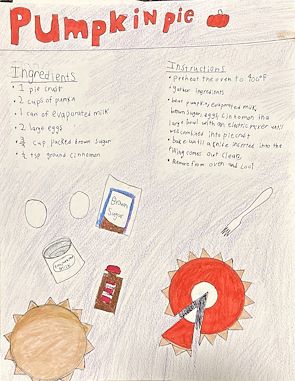 Pumpkin pie
Ingredients
• 1 pie crust
• 2 cups of pumkin
• 1 can of evaporated milk
• 2 large eggs
• 3/4 cup packed brown sugar
• 1/2 tsp ground cinnamon
Instructions
• Preheat the oven to 400°F
• gather ingredients
• beat pumpkin, evaporated milk,
brown sugar, eggs, cinnamon in a
large bowl with an electric mixer until
well combined into pie crust
• bake until a knife inserted into the
filling comes out clean
• Remove from oven and cool
Brown
Sugar